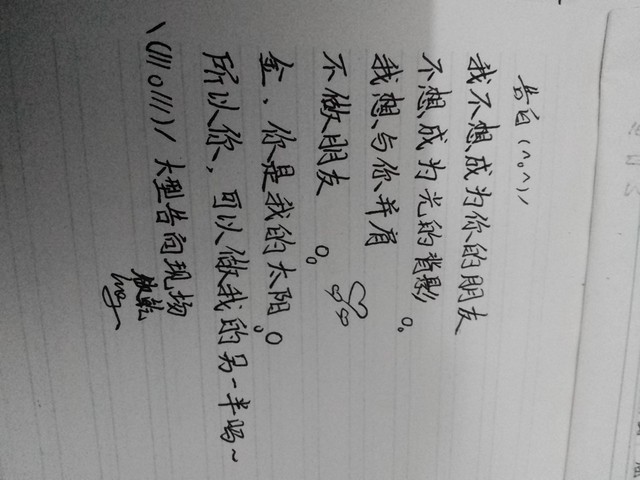 告白(^o^)/
我不想成为你的朋友
不想成为光的背影。
我想与你并肩
不做朋友。
金，你是我的太阳。
所以你，可以做我的另一半吗~
\(///o///)/大型告向现场